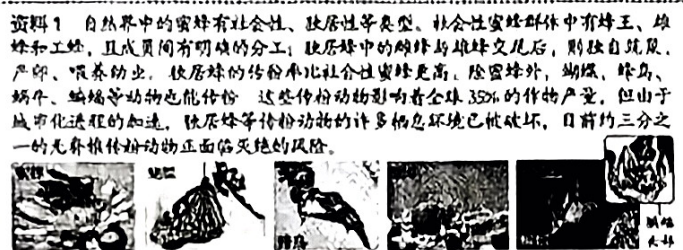 资料1 自然界中的蜜蜂有社会性、独居性等类型。社会性蜜蜂群体中有蜂王、雄
蜂和工蜂，且成员间有明确的分工；独居蜂中的雌蜂与雄蜂交尾后，则独自筑巢、
产卵、喂养幼虫。独居蜂的传粉率比社会性蜜蜂更高。除蜜蜂外，蝴蝶、蜂鸟、
蜗牛、蝙蝠等动物也能传粉 这些传粉动物影响着全球35%的作物产量，但由于
城市化进程的加速，独居蜂等传粉动物的许多栖息环境已被破坏，目前约三分之
一的无脊椎传粉动物正面临灭绝的风险。
蜜蜂
蝴蝶
蜂鸟
蝙蝠
头部